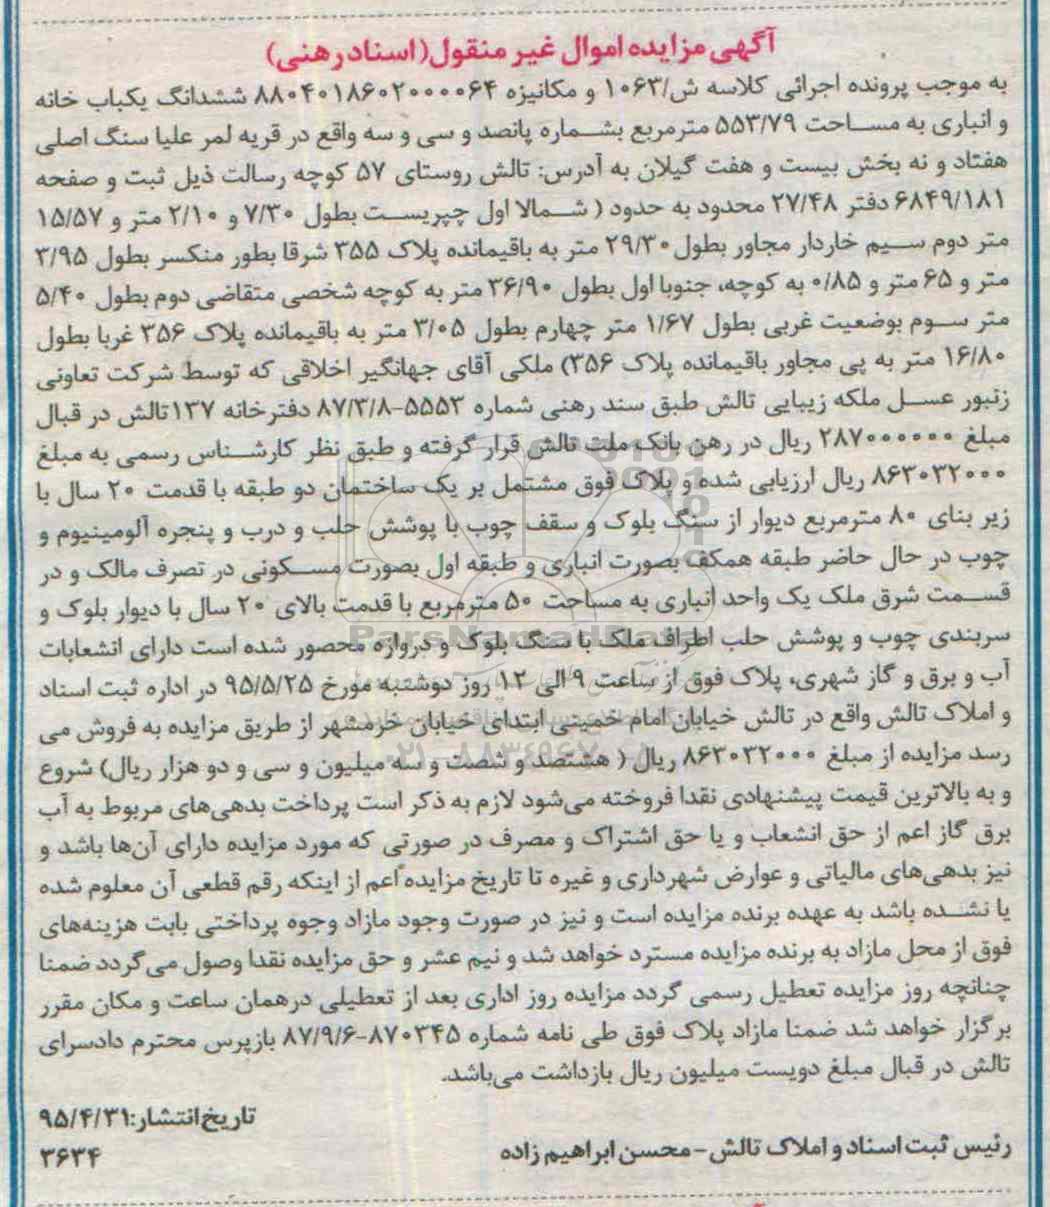 آگهی مزایده اموال غیر منقول(اسناد رهنی)
به موجب پرونده اجرائی کلاسه ش/۱۰۶۳ و مکانیزه ۸۸۰۴۰۱۸۶۰۲۰۰۰۰۶۴ ششدانگ یکباب خانه
و انباری به مساحت ۵۵۳/۷۹ مترمربع بشماره پانصد و سی و سه واقع در قریه لمر علیا سنگ اصلی
هفتاد و نه بخش بیست و هفت گیلان به آدرس: تالش روستای ۵۷ کوچه رسالت ذیل ثبت و صفحه
۶۸۴۹/۱۸۱ دفتر ۲۷/۴۸ محدود به حدود ( شمالا اول چپریست بطول ۷/۳۰ و ۲/۱۰ متر و ۱۵/۵۷
متر دوم سیم خاردار مجاور بطول ۲۹/۳۰ متر به باقیمانده پلاک ۳۵۵ شرقا بطور منکسر بطول ۳/۹۵
متر و ۶۵ متر و ۰/۸۵ به کوچه، جنوبا اول بطول ۳۶/۹۰ متر به کوچه شخصی متقاضی دوم بطول ۵/۴۰
متر سوم بوضعیت غربی بطول ۱/۶۷ متر چهارم بطول ۳/۰۵ متر به باقیمانده پلاک ۳۵۶ غربا بطول
۱۶/۸۰ متر به پی مجاور باقیمانده پلاک ۳۵۶) ملکی آقای جهانگیر اخلاقی که توسط شرکت تعاونی
زنبور عسل ملکه زیبایی تالش طبق سند رهنی شماره ۵۵۵۳-۸۷/۳/۸ دفترخانه ۱۳۷تالش در قبال
مبلغ ۲۸۷۰۰۰۰۰۰ ریال در رهن بانک ملت تالش قرار گرفته و طبق نظر کارشناس رسمی به مبلغ
۸۶۳۰۳۲۰۰۰ ریال ارزیابی شده و پلاک فوق مشتمل بر یک ساختمان دو طبقه با قدمت ۲۰ سال با
زیر بنای ۸۰ مترمربع دیوار از سنگ بلوک و سقف چوب با پوشش حلب و درب و پنجره آلومینیوم و
چوب در حال حاضر طبقه همکف بصورت انباری و طبقه اول بصورت مسکونی در تصرف مالک و در
قسمت شرق ملک یک واحد انباری به مساحت ۵۰ مترمربع با قدمت بالای ۲۰ سال با دیوار بلوک و
سربندی چوب و پوشش حلب اطراف ملک با سنگ بلوک و دروازه محصور شده است دارای انشعابات
آب و برق و گاز شهری، پلاک فوق از ساعت ۹ الی ۱۲ روز دوشنبه مورخ ۹۵/۵/۲۵ در اداره ثبت اسناد
و املاک تالش واقع در تالش خیابان امام خمینی ابتدای خیابان خرمشهر از طریق مزایده به فروش می
رسد مزایده از مبلغ ۸۶۳۰۳۲۰۰۰ ریال ( هشتصد و شصت و سه میلیون و سی و دو هزار ریال) شروع
و به بالاترین قیمت پیشنهادی نقدا فروخته می‌شود لازم به ذکر است پرداخت بدهی‌های مربوط به آب
برق گاز اعم از حق انشعاب و یا حق اشتراک و مصرف در صورتی که مورد مزایده دارای آن‌ها باشد و
نیز بدهی‌های مالیاتی و عوارض شهرداری و غیره تا تاریخ مزایده اعم از اینکه رقم قطعی آن معلوم شده
یا نشده باشد به عهده برنده مزایده است و نیز در صورت وجود مازاد وجوه پرداختی بابت هزینه‌های
فوق از محل مازاد به برنده مزایده مسترد خواهد شد و نیم عشر و حق مزایده نقدا وصول می‌گردد ضمنا
چنانچه روز مزایده تعطیل رسمی گردد مزایده روز اداری بعد از تعطیلی درهمان ساعت و مکان مقرر
برگزار خواهد شد ضمنا مازاد پلاک فوق طی نامه شماره ۸۷۰۳۴۵-۸۷/۹/۶ بازپرس محترم دادسرای
تالش در قبال مبلغ دویست میلیون ریال بازداشت می‌باشد.
تاریخ انتشار:۹۵/۴/۳۱
رئیس ثبت اسناد و املاک تالش - محسن ابراهیم زاده
۳۶۳۴
ParsNamadData
۰۲۱-۸۸۳۴۹۶۷۰